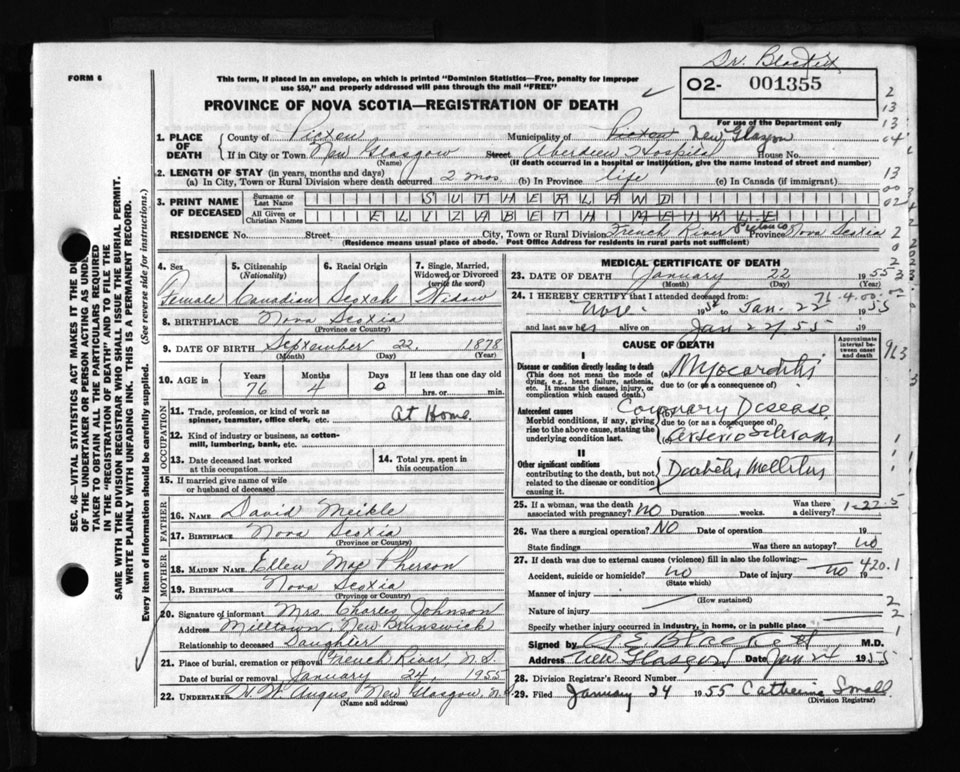 Dr. Blackett
FORM 6
This form, if placed in an envelope, on which is printed "Dominion Statistics—Free, penalty for improper
use $50," and properly addressed will pass through the mail "FREE"
02- 001355
For use of the Department only
PROVINCE OF NOVA SCOTIA—REGISTRATION OF DEATH
1. PLACE OF DEATH
County of Pictou Municipality of Pictou New Glasgow
If in City or Town New Glasgow Street Aberdeen Hospital House No.
(Name) (If death occurred in a hospital or institution, give the name instead of street and number)
2. LENGTH OF STAY (in years, months and days)
(a) In City, Town or Rural Division where death occurred 2 mos (b) In Province life (c) In Canada (if immigrant)
3. PRINT NAME OF DECEASED
Surname or Last Name SUTHERLAND
All Given or Christian Names ELIZABETH MEIKLE
RESIDENCE No. Street City, Town or Rural Division French River Pictou Co Province Nova Scotia
(Residence means usual place of abode. Post Office Address for residents in rural parts not sufficient)
4. Sex Female
5. Citizenship (Nationality) Canadian
6. Racial Origin Scotch
7. Single, Married, Widowed or Divorced (write the word) Widow
8. BIRTHPLACE Nova Scotia
(Province or Country)
9. DATE OF BIRTH September 22, 1878
(Month) (Day) (Year)
10. AGE in Years Months Days If less than one day old
76 4 0 hrs. or min.
OCCUPATION
11. Trade, profession, or kind of work as spinner, teamster, office clerk, etc. At Home
12. Kind of industry or business, as cotton-mill, lumbering, bank, etc.
13. Date deceased last worked at this occupation
14. Total yrs. spent in this occupation
15. If married give name of wife or husband of deceased
FATHER
16. NAME David Meikle
17. BIRTHPLACE Nova Scotia
(Province or Country)
MOTHER
18. MAIDEN NAME Ellen MacPherson
19. BIRTHPLACE Nova Scotia
(Province or Country)
20. Signature of informant Mrs. Charles Johnson
Address Milltown, New Brunswick
Relationship to deceased Daughter
21. Place of burial, cremation or removal French River, N.S.
Date of burial or removal January 24, 1955
22. UNDERTAKER H. W. Angus, New Glasgow, N.S.
(Name and address)
MEDICAL CERTIFICATE OF DEATH
23. DATE OF DEATH January 22 1955
(Month) (Day) (Year)
24. I HEREBY CERTIFY that I attended deceased from:
Nov. 1954 to Jan. 22 1955
and last saw her alive on Jan 22/55 19
CAUSE OF DEATH
Approximate interval between onset and death
I
Disease or condition directly leading to death (a) Myocarditis
(This does not mean the mode of dying, e.g., heart failure, asthenia, etc. It means the disease, injury, or complication which caused death.)
due to (or as a consequence of)
Antecedent causes
Morbid conditions, if any, giving rise to the above cause, stating the underlying condition last.
Coronary Disease
due to (or as a consequence of)
Arteriosclerosis
II
Other significant conditions
contributing to the death, but not related to the disease or condition causing it.
Diabetes Mellitus
25. If a woman, was the death associated with pregnancy? NO Duration weeks. Was there a delivery?
26. Was there a surgical operation? NO Date of operation
State findings Was there an autopsy? no
27. If death was due to external causes (violence) fill in also the following:—
Accident, suicide or homicide? no Date of injury no 420.1
(State which)
Manner of injury
(How sustained)
Nature of injury
Specify whether injury occurred in industry, in home, or in public place
Signed by A E Blackett M.D.
Address New Glasgow Date Jan 24 1955
28. Division Registrar's Record Number
29. Filed January 24 1955 Catherine Small
(Division Registrar)
SEC. 46—VITAL STATISTICS ACT MAKES IT THE DUTY
OF THE UNDERTAKER OR PERSON ACTING AS UNDER-
TAKER TO OBTAIN ALL THE PARTICULARS REQUIRED
IN THE "REGISTRATION OF DEATH" AND TO FILE THE
SAME WITH THE DIVISION REGISTRAR WHO SHALL ISSUE THE BURIAL PERMIT.
WRITE PLAINLY WITH UNFADING INK. THIS IS A PERMANENT RECORD.
Every item of information should be carefully supplied. (See reverse side for instructions.)